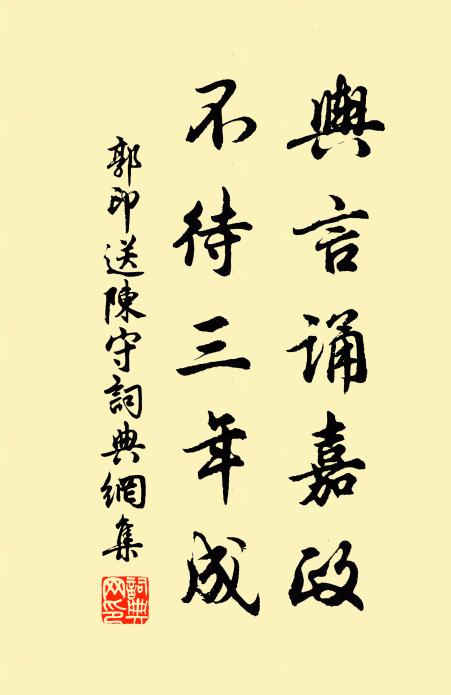 輿言誦嘉政
不待三年成
郭印送陳守詞典網集
詞典网印